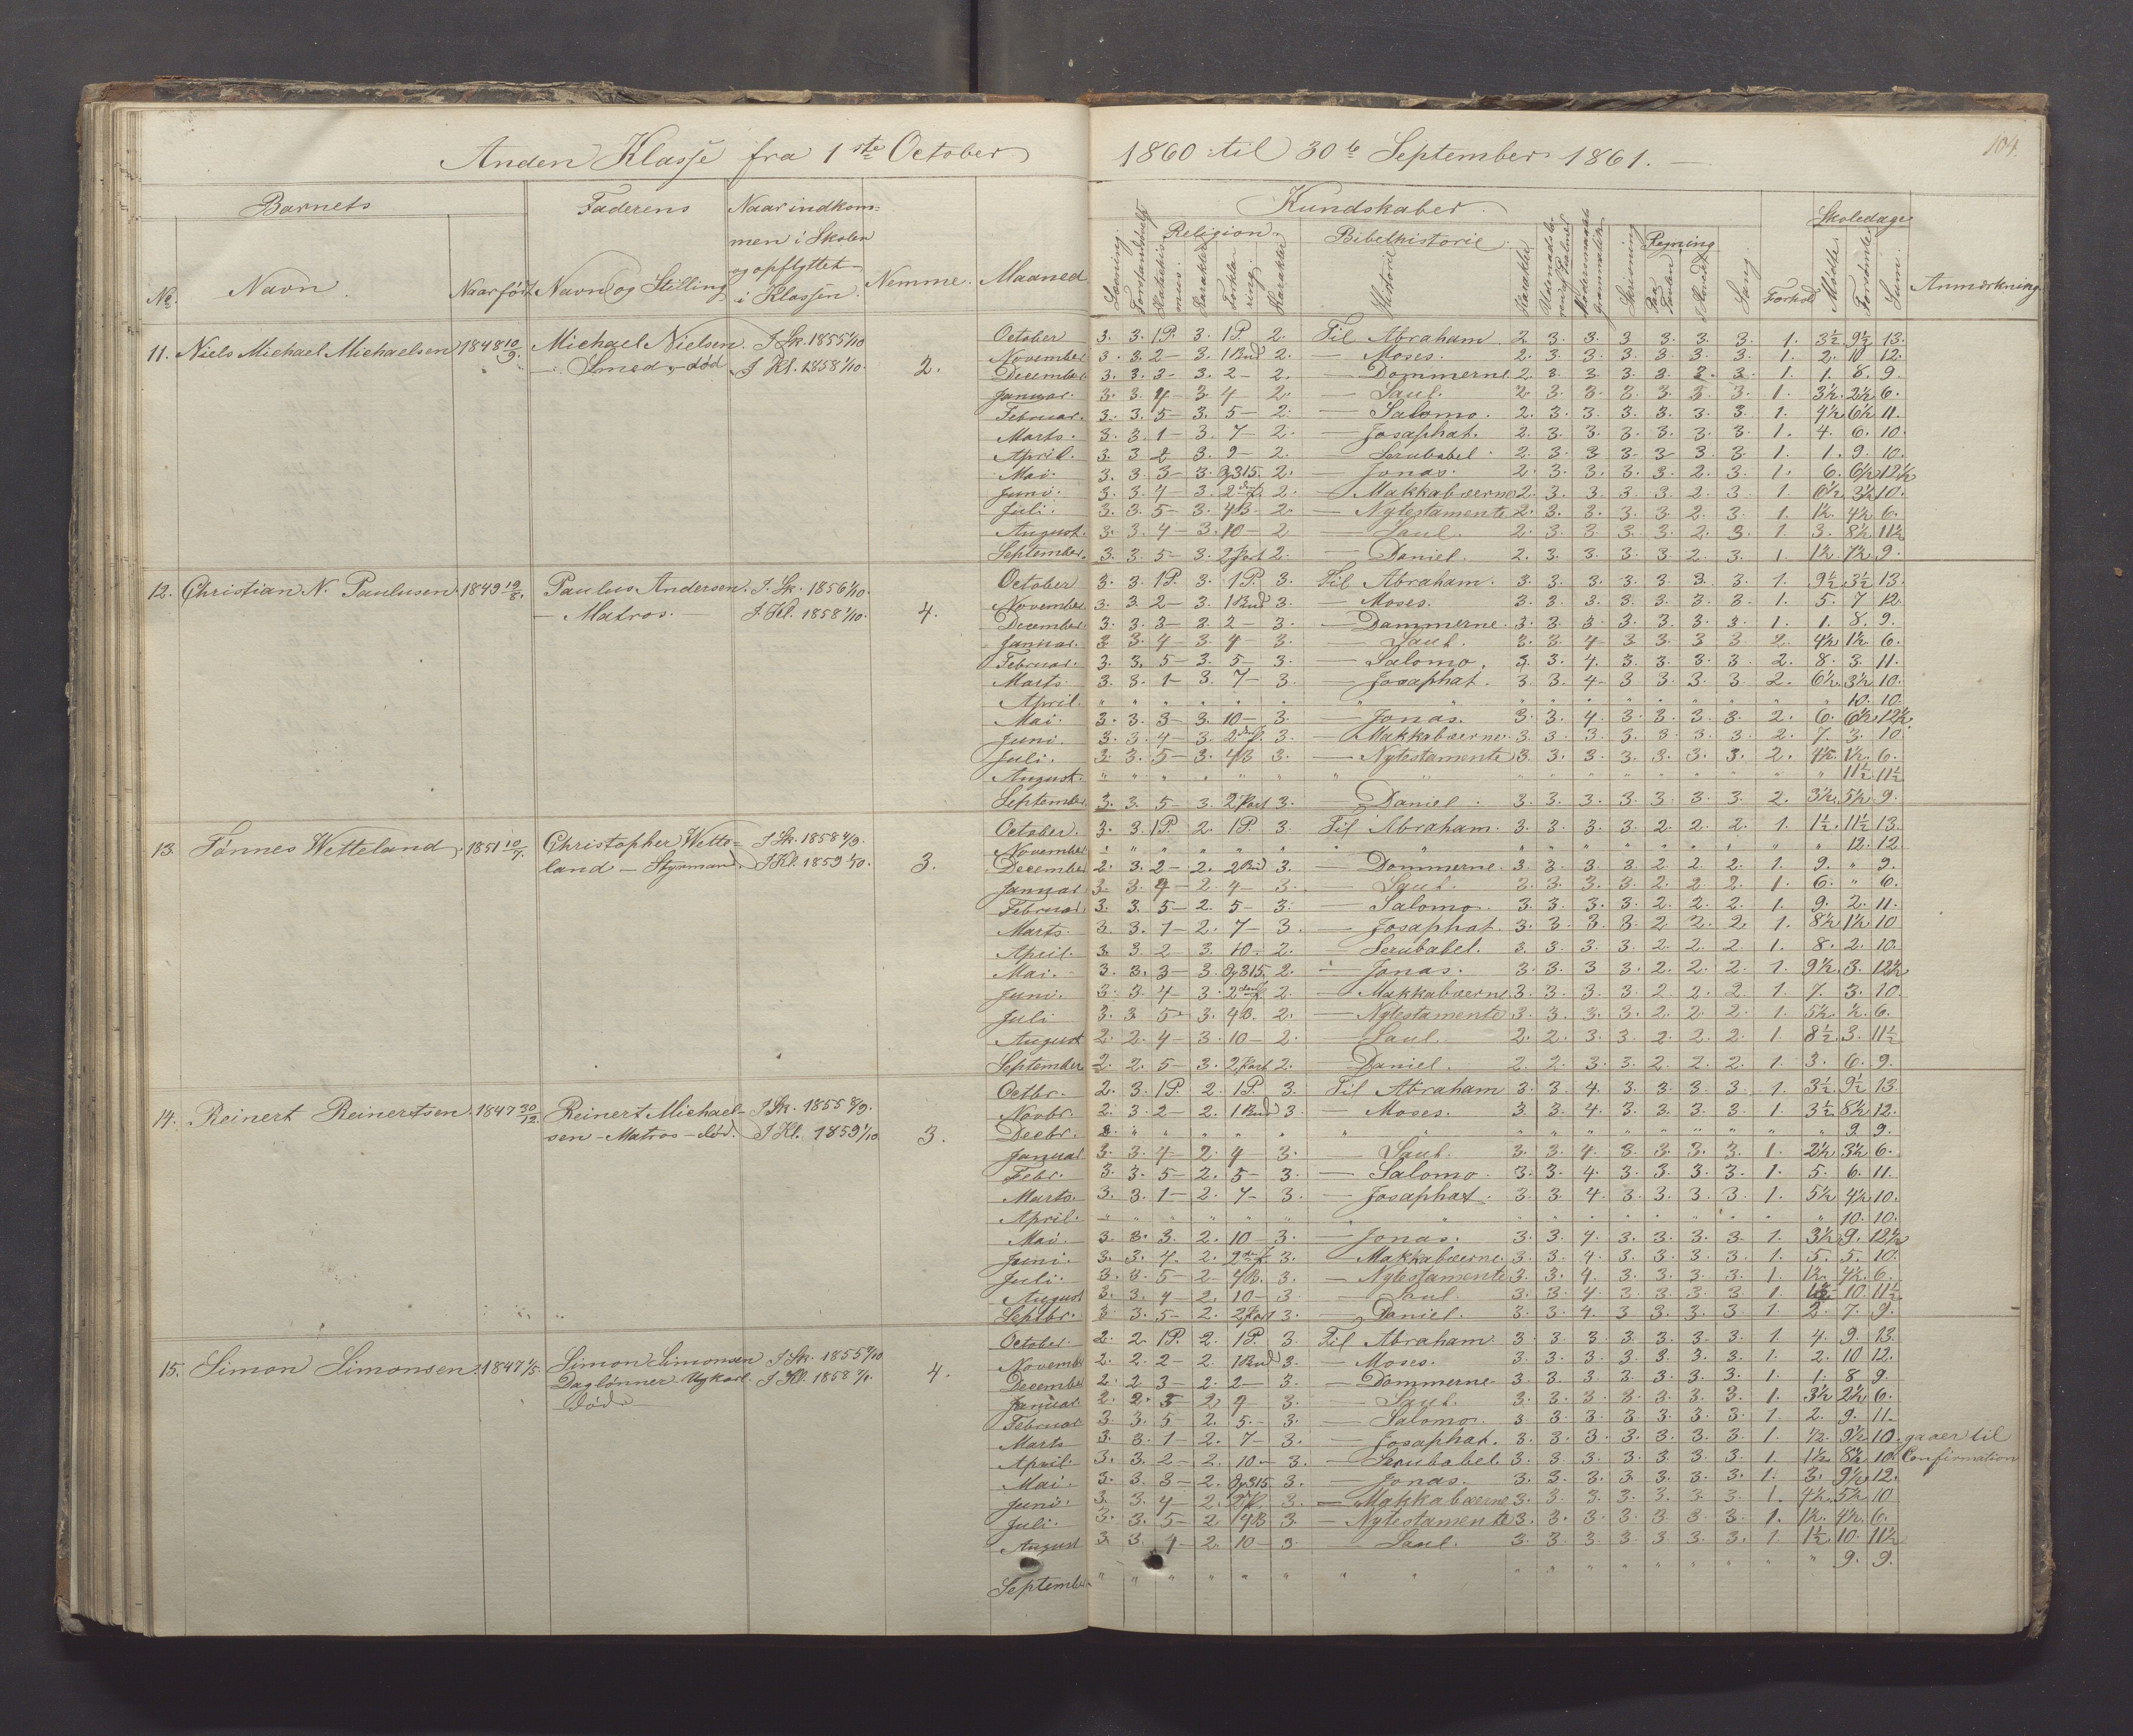 Anden Klasse fra 1ste October 1860 til 30te September 1861.
104.
Barnets
Faderens
Naar indkom=
men i Skolen
og opflyttet
i Klassen.
Kundskaber.
Skoledage
No.
Navn
Naar født
Navn og Stilling
Nemme.
Maaned
Religion.
Bibelhistorie.
Historie
Karakter
Skrivning
Regning
Sang
Forhold
Mødte
Forsømte
Sum
Anmærkning
11. Niels Michael Michaelsen 1848 10/9. Michael Nielsen I Sk. 1855 1/10
— Smed — død I Kl. 1858 1/10. 2.
October 3. 3. 1P. 3. 1P. 2. Til Abraham 2. 3. 3. 3 3. 3. 3. 1. 3½ 9½ 13.
November 3. 3. 2— 3. 1Bud 2. — Moses. 2. 3. 3. 3. 3. 3. 3. 1. 2. 10 12.
December 3. 3. 3— 3. 2— 2. — Dommerne 2. 3. 3. 3. 3. 3. 3. 1. 1. 8. 9.
Januar. 3. 3. 4— 3 4— 2. — Saul. 2 3. 3. 3. 3. 3. 3. 1. 3½. 2½ 6.
Februar. 3. 3. 5— 3. 5— 2. — Salomo. 2. 3. 3. 3. 3. 3. 3. 1. 4½ 6½ 11.
Marts. 3. 3. 1— 3. 7— 2. — Josaphat. 2. 3. 3. 3. 3. 3. 3. 1. 4. 6. 10.
April. 3. 3 2 3. 9— 2. — Serubabel 2. 3. 3. 3. 3. 3. 3. 1. 1. 9. 10.
Mai. 3. 3. 3— 3. 315. 2. — Jonas. 2. 3. 3. 3. 3. 2. 3. 1. 6. 6½ 12½
Juni. 3. 3. 4— 3. 2 2. — Makkabæerne 2. 3. 3. 3. 3. 2. 3. 1. 6½ 3½ 10.
Juli. 3. 3. 5— 3. 4B. 2. — Nytestamente 2. 3. 3. 3. 3. 2. 3. 1. 1½. 4½ 6.
August. 3. 3. 4— 3. 10— 2 — Saul. 2. 3. 3. 3. 3. 2. 3. 1. 3. 8½ 11½
September. 3. 3. 5— 3. 2Part 2. — Daniel. 2. 3. 3. 3. 3. 2. 3. 1. 1½. 7½ 9.
12. Christian N. Paulusen 1849 19/8. Paulus Andersen. I. Sk. 1856 1/10.
— Matros. I Kl. 1858 1/10. 4.
October 3. 3. 1P. 3. 1P. 3. Til Abraham. 3. 3. 3. 3. 3. 3. 3. 1. 9½ 3½ 13.
November 3. 3. 2— 3. 1Bud 3. — Moses. 3. 3. 3. 3. 3. 3. 3. 1. 5. 7 12
December. 3. 3. 3— 3. 2— 3. — Dommerne. 3. 3. 3. 3. 3. 3. 3. 1. 1. 8. 9.
Januar. 3 3. 4— 3. 4— 3. — Saul. 3. 3. 4 3 3. 3. 3. 2. 4½ 1½. 6.
Februar. 3. 3. 5— 3. 5— 3. — Salomo. 3. 3. 4. 3. 3. 3. 3. 2. 8. 3. 11.
Marts. 3. 3. 1— 3. 7— 3. — Josaphat. 3. 3. 4 3 3. 3. 3. 2. 6½. 3½ 10.
April. " " " " " " " " " " " " " " " " " 10. 10.
Mai. 3. 3. 3— 3. 10— 3. — Jonas. 3. 3. 4. 3. 3. 3. 3. 2. 6. 6½ 12½.
Juni. 3. 3. 4— 3. 2 3. — Makkabæerne. 3. 3. 3. 3. 3. 3. 3. 2. 7. 3. 10
Juli. 3. 3. 5— 3. 4B 3. — Nytestamente 3. 3. 3. 3. 3. 3. 3. 2. 4½. 1½. 6.
August. " " " " " " " " " " " " " " " " " 11½ 11½
September. 3. 3. 5— 3. 2Part 3. — Daniel. 3. 3. 3. 3. 3. 3. 3. 2. 3½. 5½ 9.
13. Tønnes Wetteland. 1851 10/7. Christopher Wette= I Sk. 1858 /9.
land — Styrmand. I Kl. 1859 1/10. 3.
October. 3. 3. 1P. 2. 1P. 3. Til Abraham. 3. 3. 3. 3. 2. 2. 2. 1. 1½. 11½ 13.
November " " " " " " " " " " " " " " " " " 12. 12.
December 2. 3. 2— 2. 2Bud 3. — Dommerne. 3. 3. 3. 3. 2. 2. 2. 1. 9. " 9.
Januar 3. 3. 4— 2. 4— 3. — Saul. 3. 3. 3. 3. 2. 2. 2. 1. 6. " 6.
Februar 3. 3. 5— 2. 5— 3. — Salomo. 3. 3. 3. 3. 2. 2. 2. 1. 9. 2. 11.
Marts. 3. 3. 1— 2. 7— 3. — Josaphat. 3. 3. 3. 3. 2. 2. 2. 1. 8½. 1½ 10
April. 3. 3 2 3. 10— 2. — Serubabel. 3. 3. 3. 3. 2. 2. 2 1. 8. 2. 10.
Mai. 3. 3. 3— 3. 315. 2. — Jonas. 3. 3. 3 3. 2. 2. 2. 1. 9½. 3. 12½
Juni. 3. 3. 4— 3. 2 2. — Makkabæerne 3. 3. 3. 3. 2. 2. 2. 1. 7. 3. 10.
Juli 3. 3 5— 3. 4B. 2. — Nytestamente 3. 3. 3. 3. 2. 2. 2. 1. 5½. ½. 6.
August 2. 2. 4— 3. 10— 2. — Saul. 2. 2. 3. 3. 2. 2. 2. 1. 8½. 3. 11½
September 2. 2. 5— 3. 2Part 2. — Daniel. 2. 2. 3. 3. 2. 2. 2. 1. 3. 6. 9.
14. Reinert Reinertsen. 1847 30/12. Reinert Michael= I Sk. 1855 /9.
sen — Matros — død. I Kl. 1859 1/10 3.
Octbr. 2. 3. 1P. 2. 1P. 3. Til Abraham 3. 3. 4. 3. 3. 3. 3. 1. 3½ 9½ 13.
Novbr. 2. 3. 2— 2. 1Bud 3. — Moses. 3. 3. 4. 3. 3. 3. 3. 1. 3½ 8½ 12.
Decbr. " " " " " " " " " " " " " " " " 9. 9.
Januar 3. 3. 4— 2. 4— 3. — Saul. 3. 3. 4. 3. 3. 3. 3. 1. 2½. 3½ 6.
Febr. 3. 3. 5— 2. 5— 3. — Salomo. 3. 3. 4. 3. 3. 3. 3. 1. 5. 6. 11.
Marts. 3. 3. 1— 2. 7— 3. — Josaphat. 3. 3. 4. 3. 3. 3. 3. 1. 5½ 4½ 10.
April. " " " " " " " " " " " " " " " " " 10. 10.
Mai. 3. 3. 3. 2. 10— 3. — Jonas. 3. 3. 4. 3. 3. 3. 3. 1. 3½ 9. 12½
Juni. 3. 3. 4. 2. 2 3. — Makkabæerne. 3. 3. 4. 3. 3. 3. 3. 1. 5. 5. 10.
Juli. 3. 3. 5— 2. 4B. 3. — Nytestamente 3. 3. 4. 3. 3. 3. 3. 1. 1½. 4½. 6.
August 3. 3. 4— 2. 10— 3. — Saul. 3. 3. 4. 3. 3. 3. 3 1. 1½ 10. 11½
Septbr. 3. 3. 5— 2. 2Part 3. — Daniel. 3. 3. 4. 3 3. 3. 3. 1. 2. 7. 9.
15. Simon Simonsen. 1847 1/5. Simon Simonsen I Sk. 1855 /10
Daglønner I Kl. 1858 4.
død
October 2. 2. 1P. 2. 1P. 3. Til Abraham. 3. 3. 3. 3. 3. 3. 3. 1. 4. 9. 13.
November 2. 2. 2— 2. 1Bud 3. — Moses. 3. 3. 3. 3. 3. 3. 3. 1. 2. 10 12.
December 2. 2 3— 2. 2— 3. — Dommerne 3. 3. 3. 3. 3. 3. 3. 1. 1. 8 9.
Januar 2. 2. 3— 2. 4— 3. — Saul. 3. 3. 3. 3. 3. 3. 3. 1. 3½ 2½ 6.
Februar 3. 3. 5— 2. 5.— 3. — Salomo. 3 3. 3. 3 3. 3. 3. 1. 2. 9. 11.
Marts 3. 3. 1— 2. 7— 3. — Josaphat. 3. 3. 3. 3. 3. 3. 3. 1. ½. 9½ 10. gaaer til
April 3. 3. 2— 2. 10— 3. — Serubabel 3. 3. 3. 3. 3. 3. 3. 1. 1½. 8½ 10. Confirmation
Mai. 3. 3. 3— 2. 315. 3. — Jonas. 3. 3. 3. 3. 3. 3. 3. 1. 3. 9½ 12.
Juni. 3. 3. 4— 2. 2 3. — Makkabæerne 3. 3. 3. 3. 3. 3. 3. 1. 4½. 5½ 10
Juli. 3. 3. 5— 2. 4B 3. — Nytestamente 3. 3. 3. 3. 3. 3. 3. 1. 1½. 4½. 6.
August 3. 3. 4— 2. 10— 3 — Saul. 3. 3. 3. 3. 3. 3. 3. 1. 1½ 10. 11½
September " " " " " " " " " " " " " " " " " 9. 9.